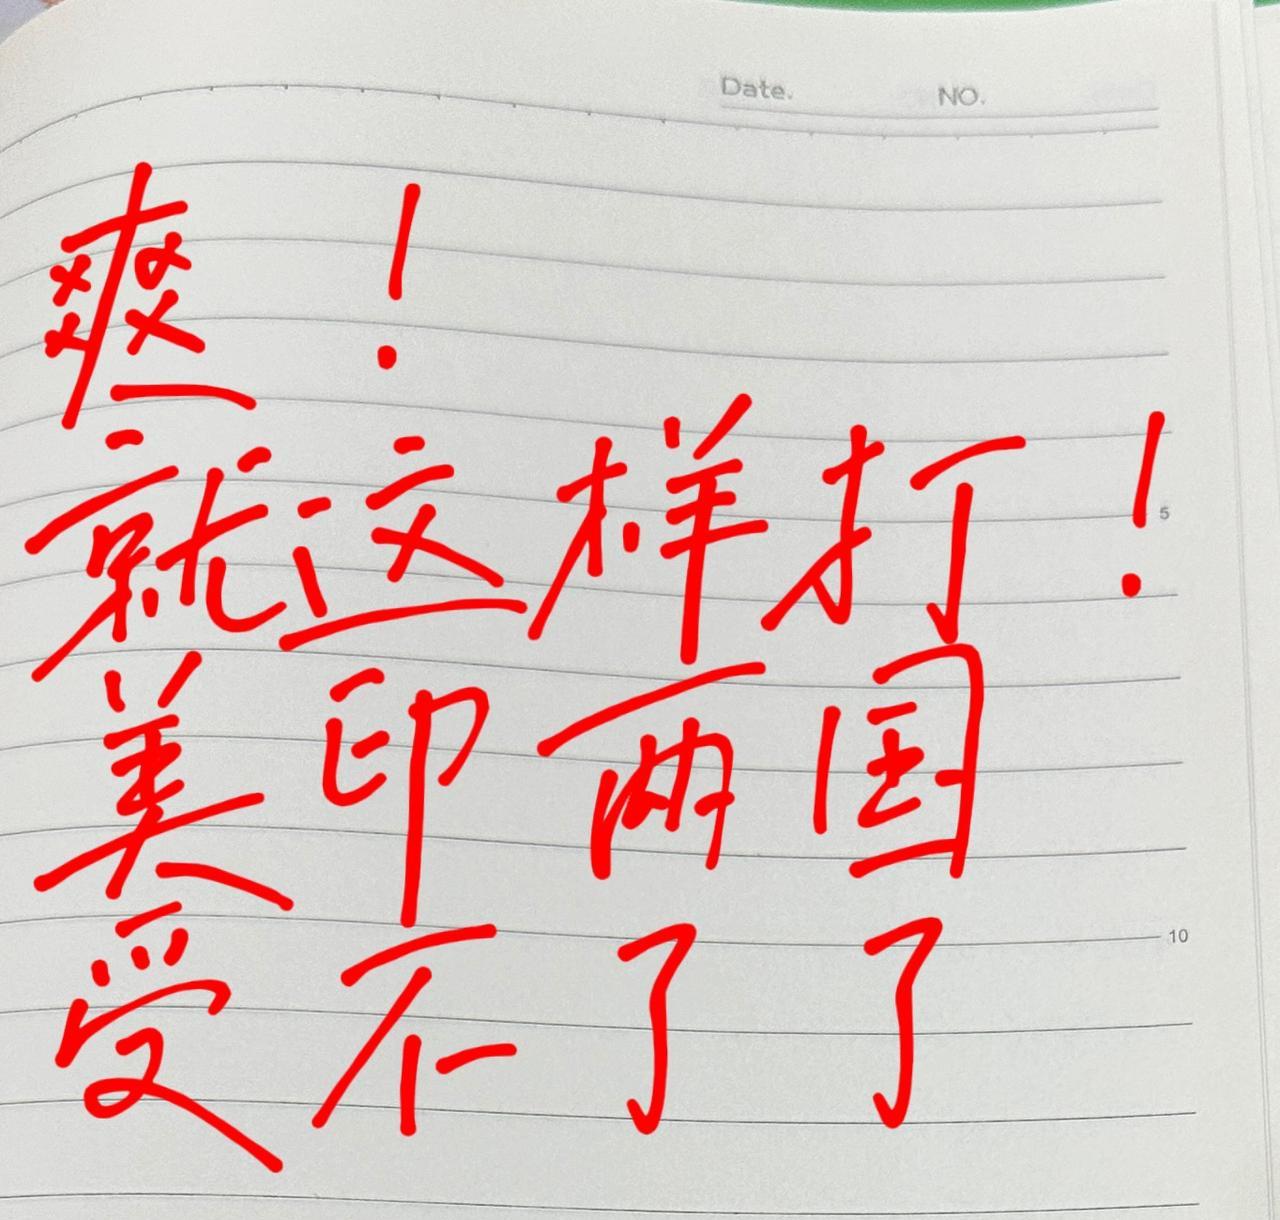 Date. NO.
爽！
就这样打！
5
美印两国
受不了了
10